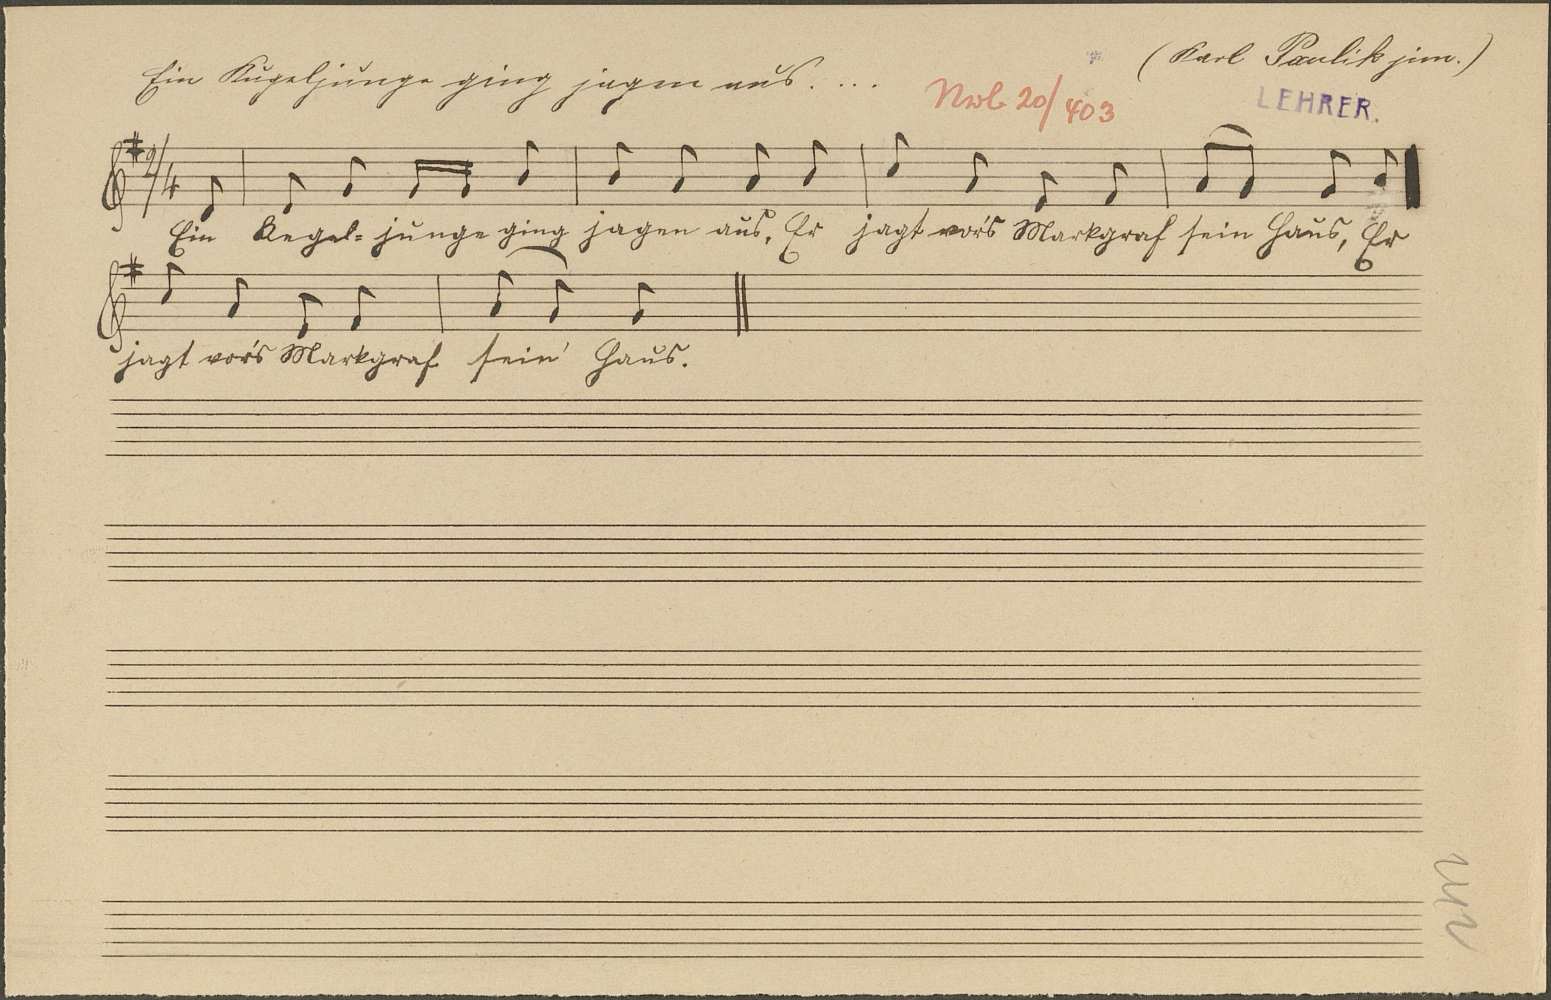 (Karl Paulik jun.)
Ein Kugeljunge ging jagen aus. ...
Nwb 20/403
LEHRER.
2/4
Ein Kegel= junge ging jagen aus, Er jagt vor's Markgraf sein Haus, Er
jagt vor's Markgraf sein' Haus.